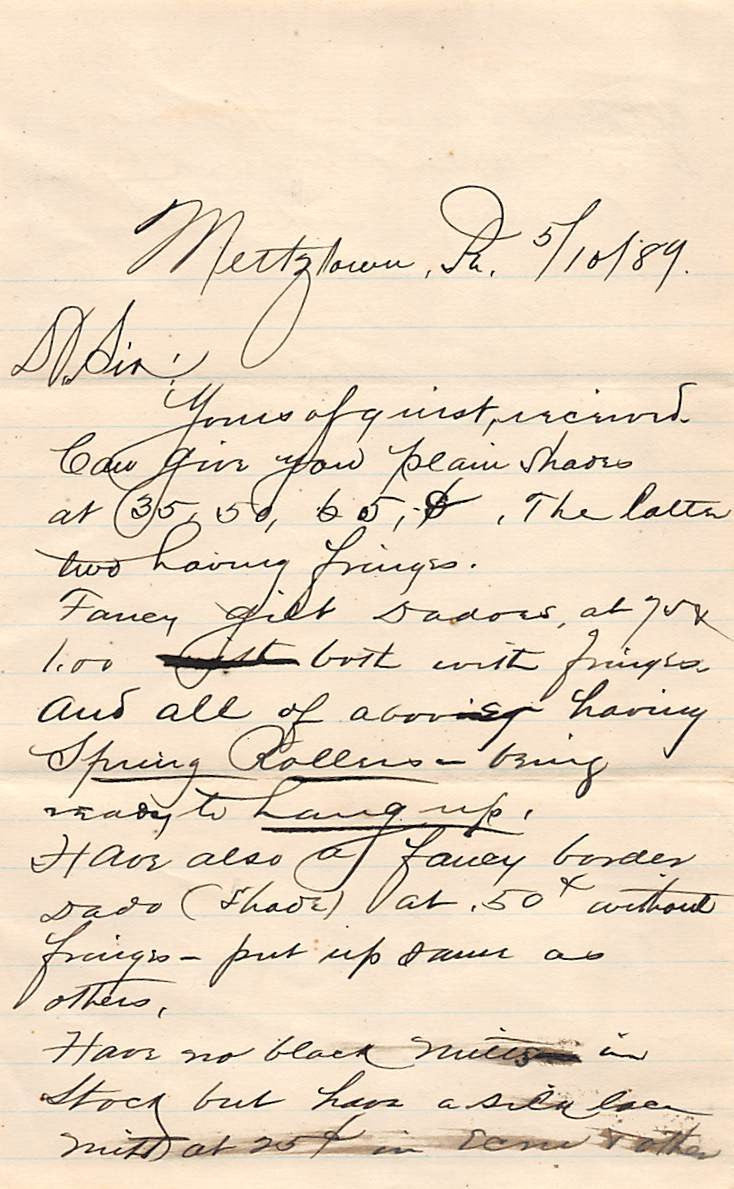 Mertztown, Pa. 5/10/89.
Dr. Sir:
Yours of 9 inst, received.
Can give you plain shades
at 35, 50, 65, ¢, The latter
two having fringes.
Fancy gilt Dadoes, at 75 &
1.00 both with fringes
and all of above having
Spring Rollers – being
ready to hang up.
Have also a fancy border
Dado (Shade) at .50¢ without
fringes – put up same as
others.
Have no black mitts in
Stock but have a silk lace
mitt at 25¢ in Ecru & other